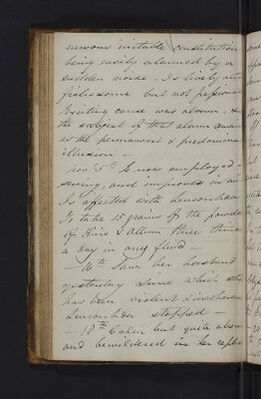 nervous irritable constitution
being easily alarmed by a
sudden noise. Is lively
but not passionate
Exciting cause was alarm, &
the subject of that alarm
as the permanent & predominant
illusion —
Nov 5th Is now employed in
sewing, and improved in
Is affected with Leucorrhoea
To take 15 grains of the powder
of Kino & Alum three times
a day in any fluid —
— 16th Saw her husband
yesterday since which she
has been violent & incoherent
Leucorrhoea stopped —
— 18th Calm but quite absent
and bewildered in her replies